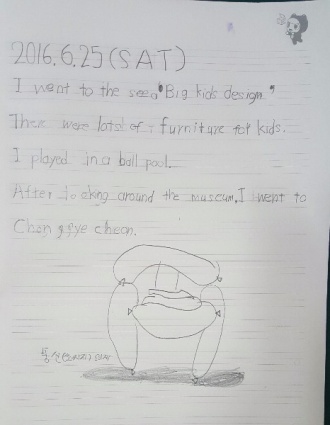 2016.6.25(SAT)
I went to the seed "Big kids design"
There were lots of furniture for kids.
I played in a ball pool.
After looking around the museum, I went to
Cheon ggye cheon.